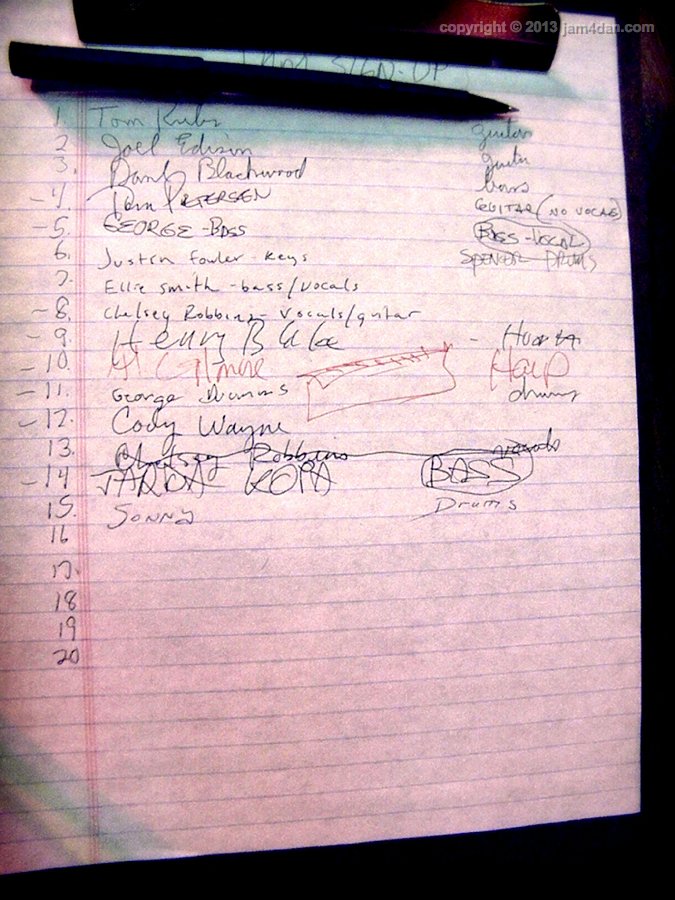 copyright © 2013 jam4dan.com
JAM SIGN-UP
1. Tom guitar
2 Joel Edisin guitar
3. Blackwood bass
-4. Tom PETERSEN GUITAR (NO VOCAL)
-5. GEORGE - BASS BASS - VOCAL
6. Justin Fowler - keys SPENCER DRUMS
7. Ellie Smith - bass/vocals
-8. Chelsey Robbins - vocals/guitar
-9. Henry B -
-10. Al Gilmore Harp
-11. George Drums drums
-12. Cody Wayne
13. Chelsey Robbins vocals
-14 JARDA KOPA BASS
15. Sonny Drums
16
17.
18
19
20